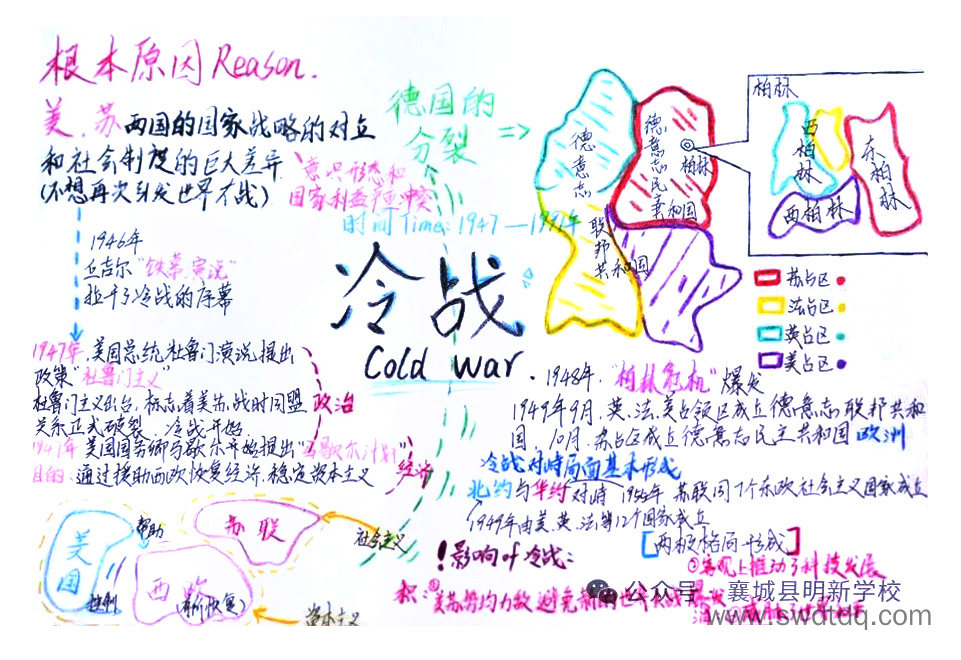 根本原因Reason.
美、苏两国的国家战略的对立
和社会制度的巨大差异
(不想再次引发世界大战)
意识形态和
国家利益
冲突
德国的
分裂
=>
时间Time: 1947—1991年
1946年
丘吉尔"铁幕演说"
拉开了冷战的序幕
冷战
Cold war.
德意志
联邦
共和国
德意志民主共和国
柏林
柏林
西柏林
西柏林
东柏林
苏占区
法占区
英占区
美占区
1947年,美国总统杜鲁门演说提出
政策"杜鲁门主义"
杜鲁门主义出台,标志着美苏战时同盟
关系正式破裂、冷战开始
政治
1947年美国国务卿马歇尔开始提出"马歇尔计划"
目的:通过援助西欧恢复经济.稳定资本主义
经济
1948年."柏林危机"爆发
1949年9月,英、法、美占领区成立德意志联邦共和
国,10月,苏占区成立德意志民主共和国
欧洲
冷战对峙局面基本形成
北约与华约对峙 1955年 苏联同7个东欧社会主义国家成立
1949年由美、英、法等12个国家成立
[两极格局形成]
美国
帮助
控制
苏联
西欧
社会主义
资本主义
!影响 冷战:
①客观上推动了科技发展
积:
美苏势均力敌 避免新的世界大战
公众号 · 襄城县明新学校
www.swdtdq.com